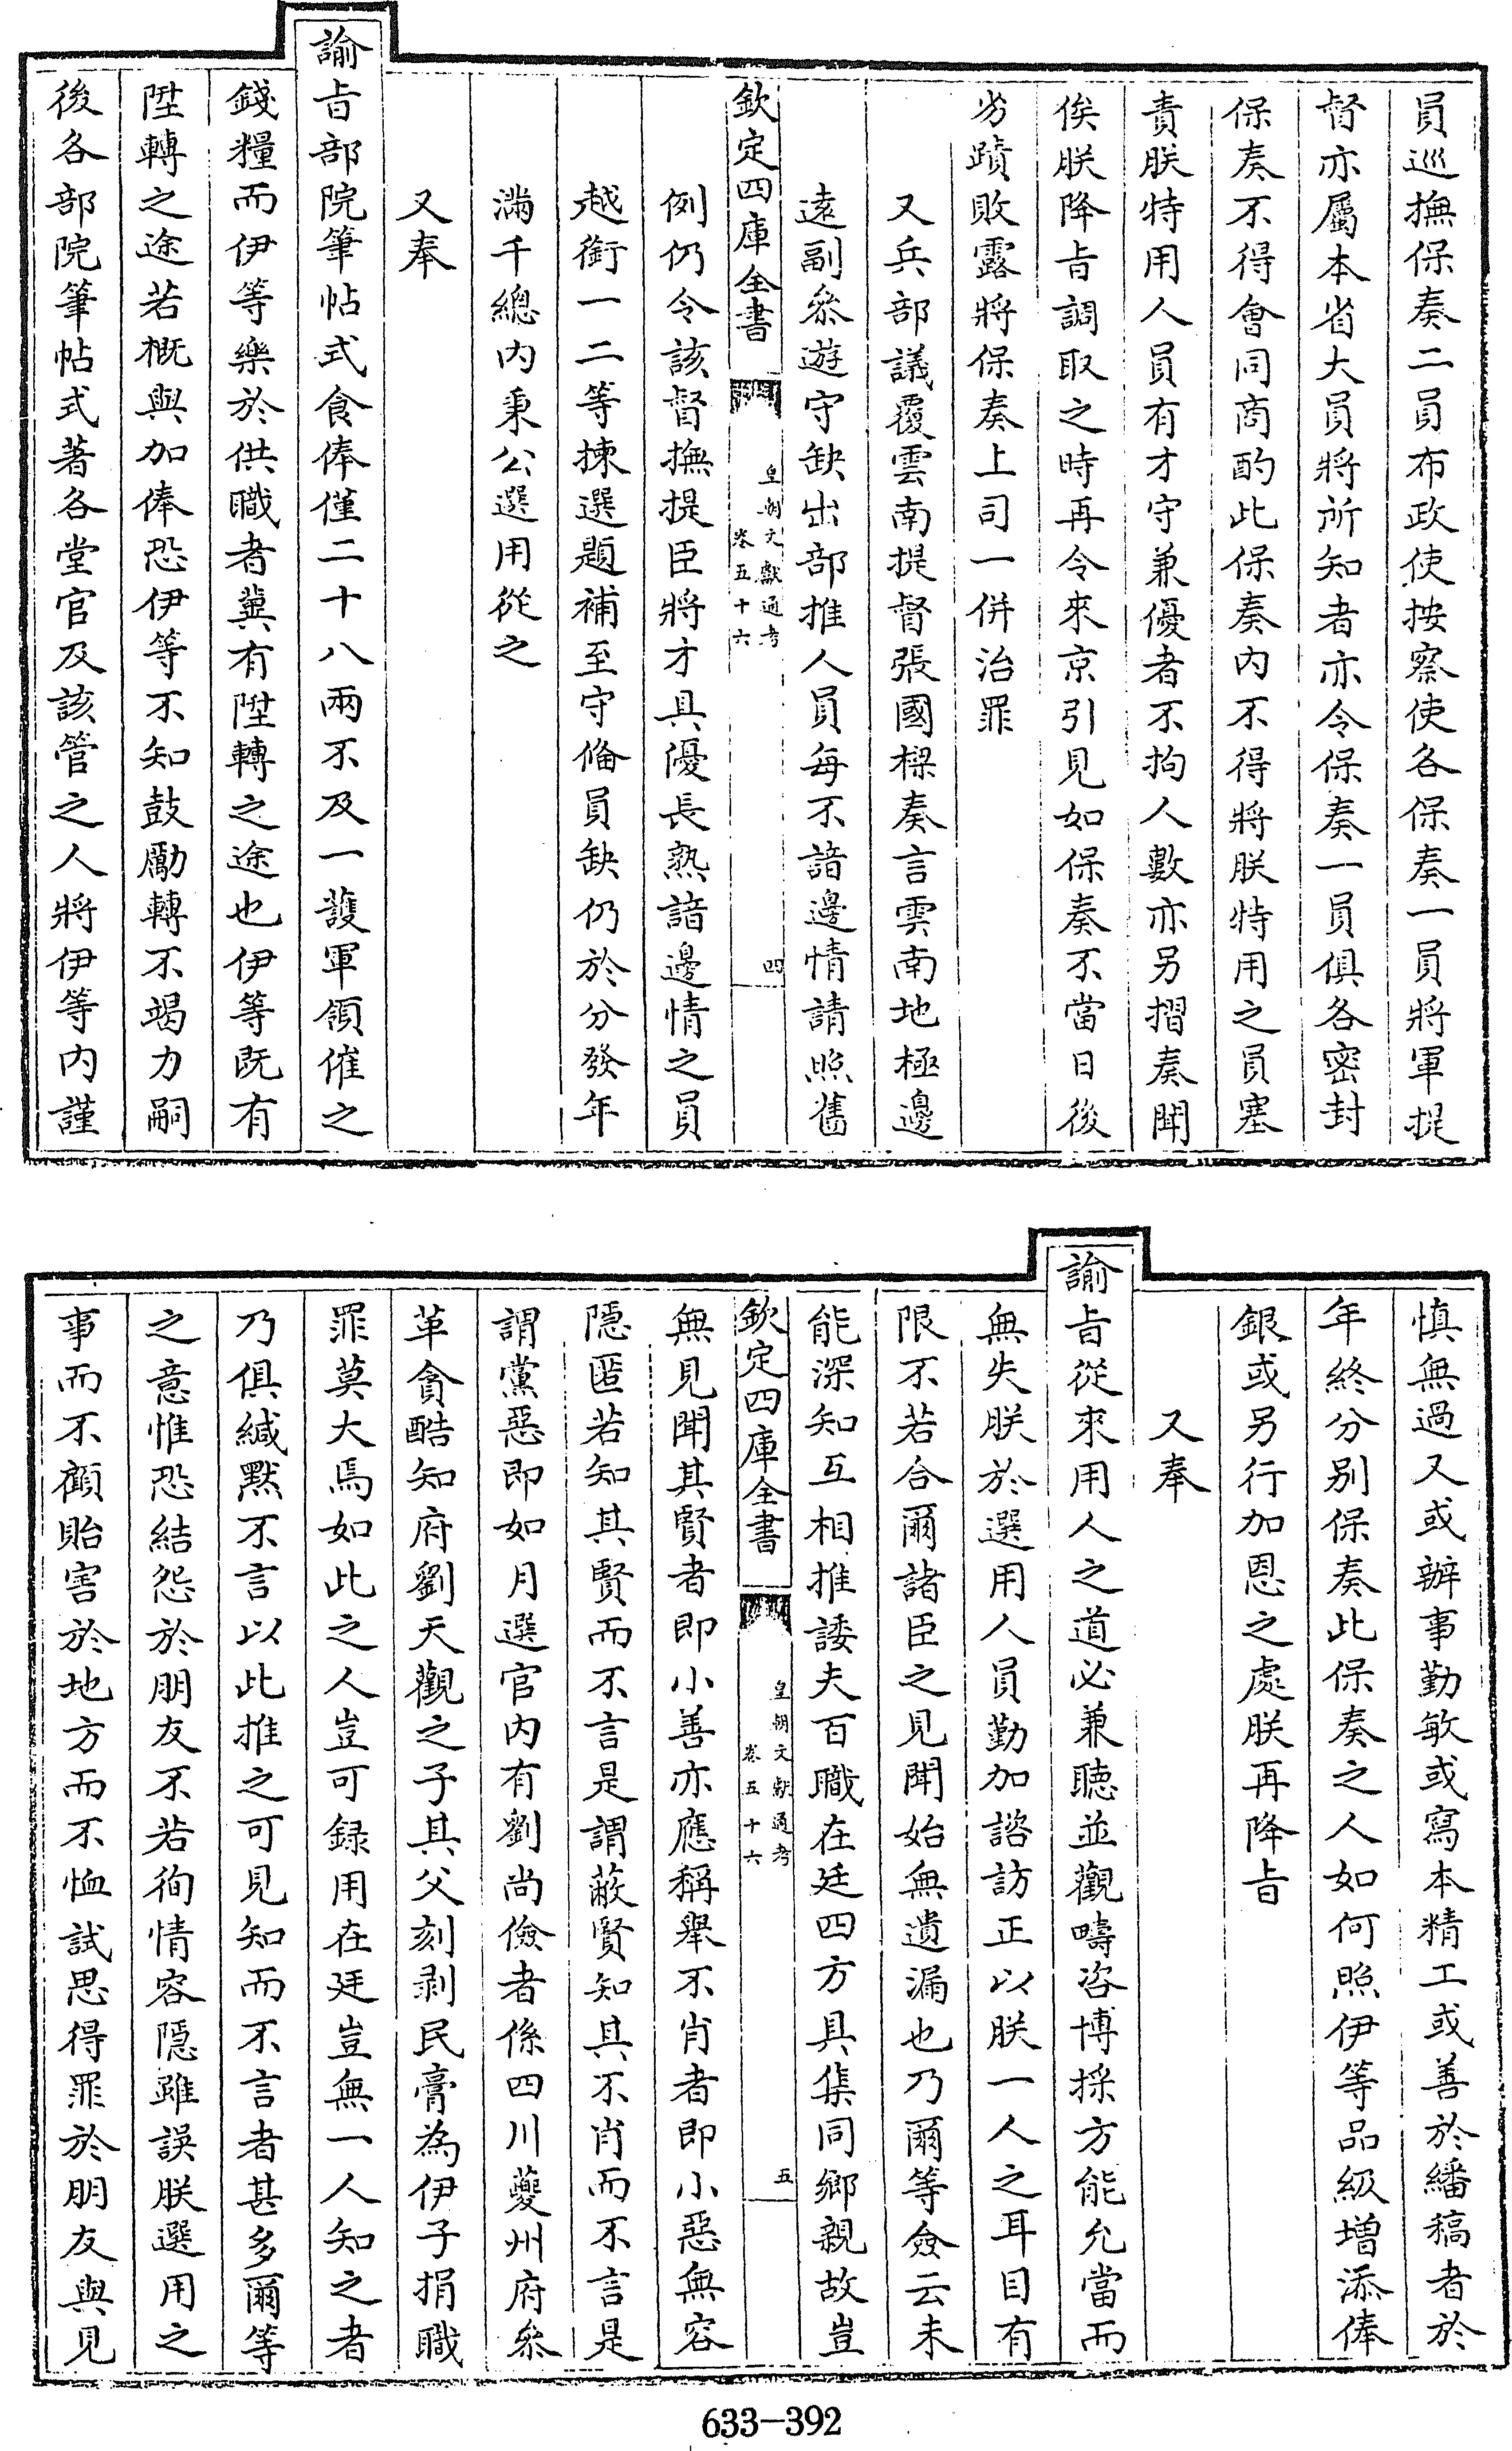 員巡撫保奏二員布政使按察使各保奏一員將軍提
督亦屬本省大員將所知者亦令保奏一員俱各密封
保奏不得會同商酌此保奏內不得將朕特用之員塞
責朕特用人員有才守兼優者不拘人數亦另摺奏聞
俟朕降旨調取之時再令來京引見如保奏不當日後
劣蹟敗露將保奏上司一併治罪
又兵部議覆雲南提督張國樑奏言雲南地極邊
遠副叅遊守缺出部推人員每不諳邊情請照舊
欽定四庫全書
皇朝文獻通考
卷五十六
四
例仍令該督撫提臣將才具優長熟諳邊情之員
越銜一二等揀選題補至守備員缺仍於分發年
滿千總内秉公選用從之
又奉
諭旨部院筆帖式食俸僅二十八兩不及一護軍領催之
錢糧而伊等樂於供職者冀有陞轉之途也伊等既有
陞轉之途若概與加俸恐伊等不知鼓勵轉不竭力嗣
後各部院筆帖式著各堂官及該管之人將伊等内謹
慎無過又或辦事勤敏或寫本精工或善於繙稿者於
年終分别保奏此保奏之人如何照伊等品級增添俸
銀或另行加恩之處朕再降旨
又奉
諭旨從來用人之道必兼聽並觀疇咨博採方能允當而
無失朕於選用人員勤加諮訪正以朕一人之耳目有
限不若合爾諸臣之見聞始無遺漏也乃爾等僉云未
能深知互相推諉夫百職在廷四方具集同鄉親故豈
欽定四庫全書
皇朝文獻通考
卷五十六
五
無見聞其賢者即小善亦應稱舉不肖者即小惡無容
隱匿若知其賢而不言是謂蔽賢知其不肖而不言是
謂黨惡即如月選官内有劉尚儉者係四川夔州府叅
革貪酷知府劉天觀之子其父刻剥民膏為伊子捐職
罪莫大焉如此之人豈可録用在廷豈無一人知之者
乃俱緘黙不言以此推之可見知而不言者甚多爾等
之意惟恐結怨於朋友不若徇情容隱雖誤朕選用之
事而不顧貽害於地方而不恤試思得罪於朋友與見
633-392